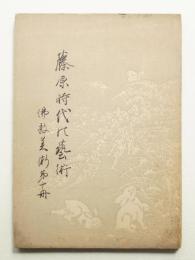 藤原時代の藝術
佛教美術第十冊